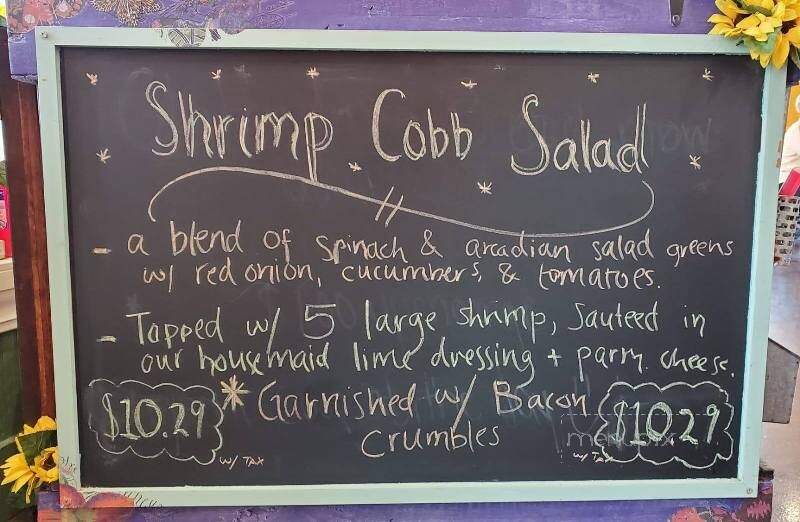 Shrimp Cobb Salad
- a blend of spinach & arcadian salad greens
w/ red onion, cucumbers, & tomatoes.
- Topped w/ 5 large shrimp, sauteed in
our housemaid lime dressing + parm. cheese.
* Garnished w/ Bacon
Crumbles
$10.29
w/ TAX
$10.29
w/ TAX